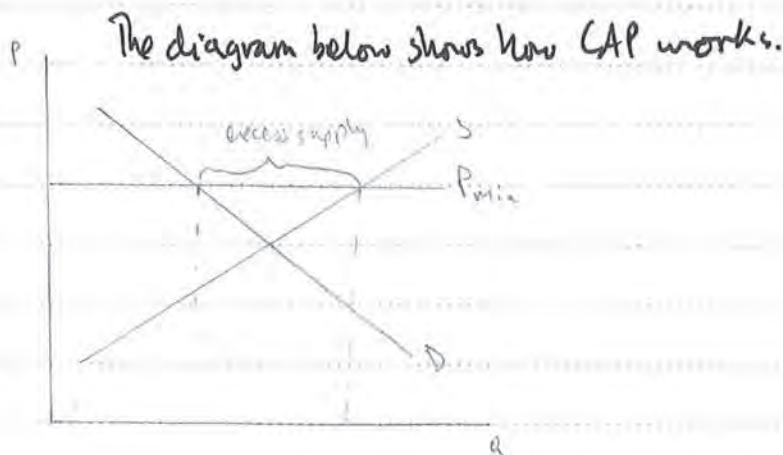 The diagram below shows how CAP works.
P
excess supply
S
Pmin
D
Q